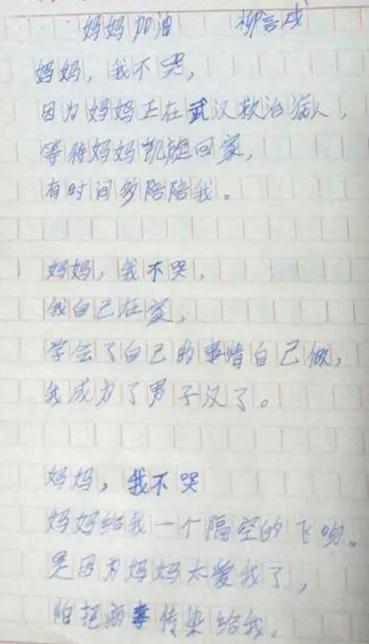 妈妈加油 柳言成
妈妈,我不哭,
因为妈妈正在武汉救治病人,
等待妈妈凯旋回家,
有时间多陪陪我。
妈妈,我不哭,
我自己在家,
学会了自己的事情自己做,
我成为了男子汉了。
妈妈,我不哭
妈妈给我一个隔空的飞吻。
是因为妈妈太爱我了,
怕把病毒传染给我。